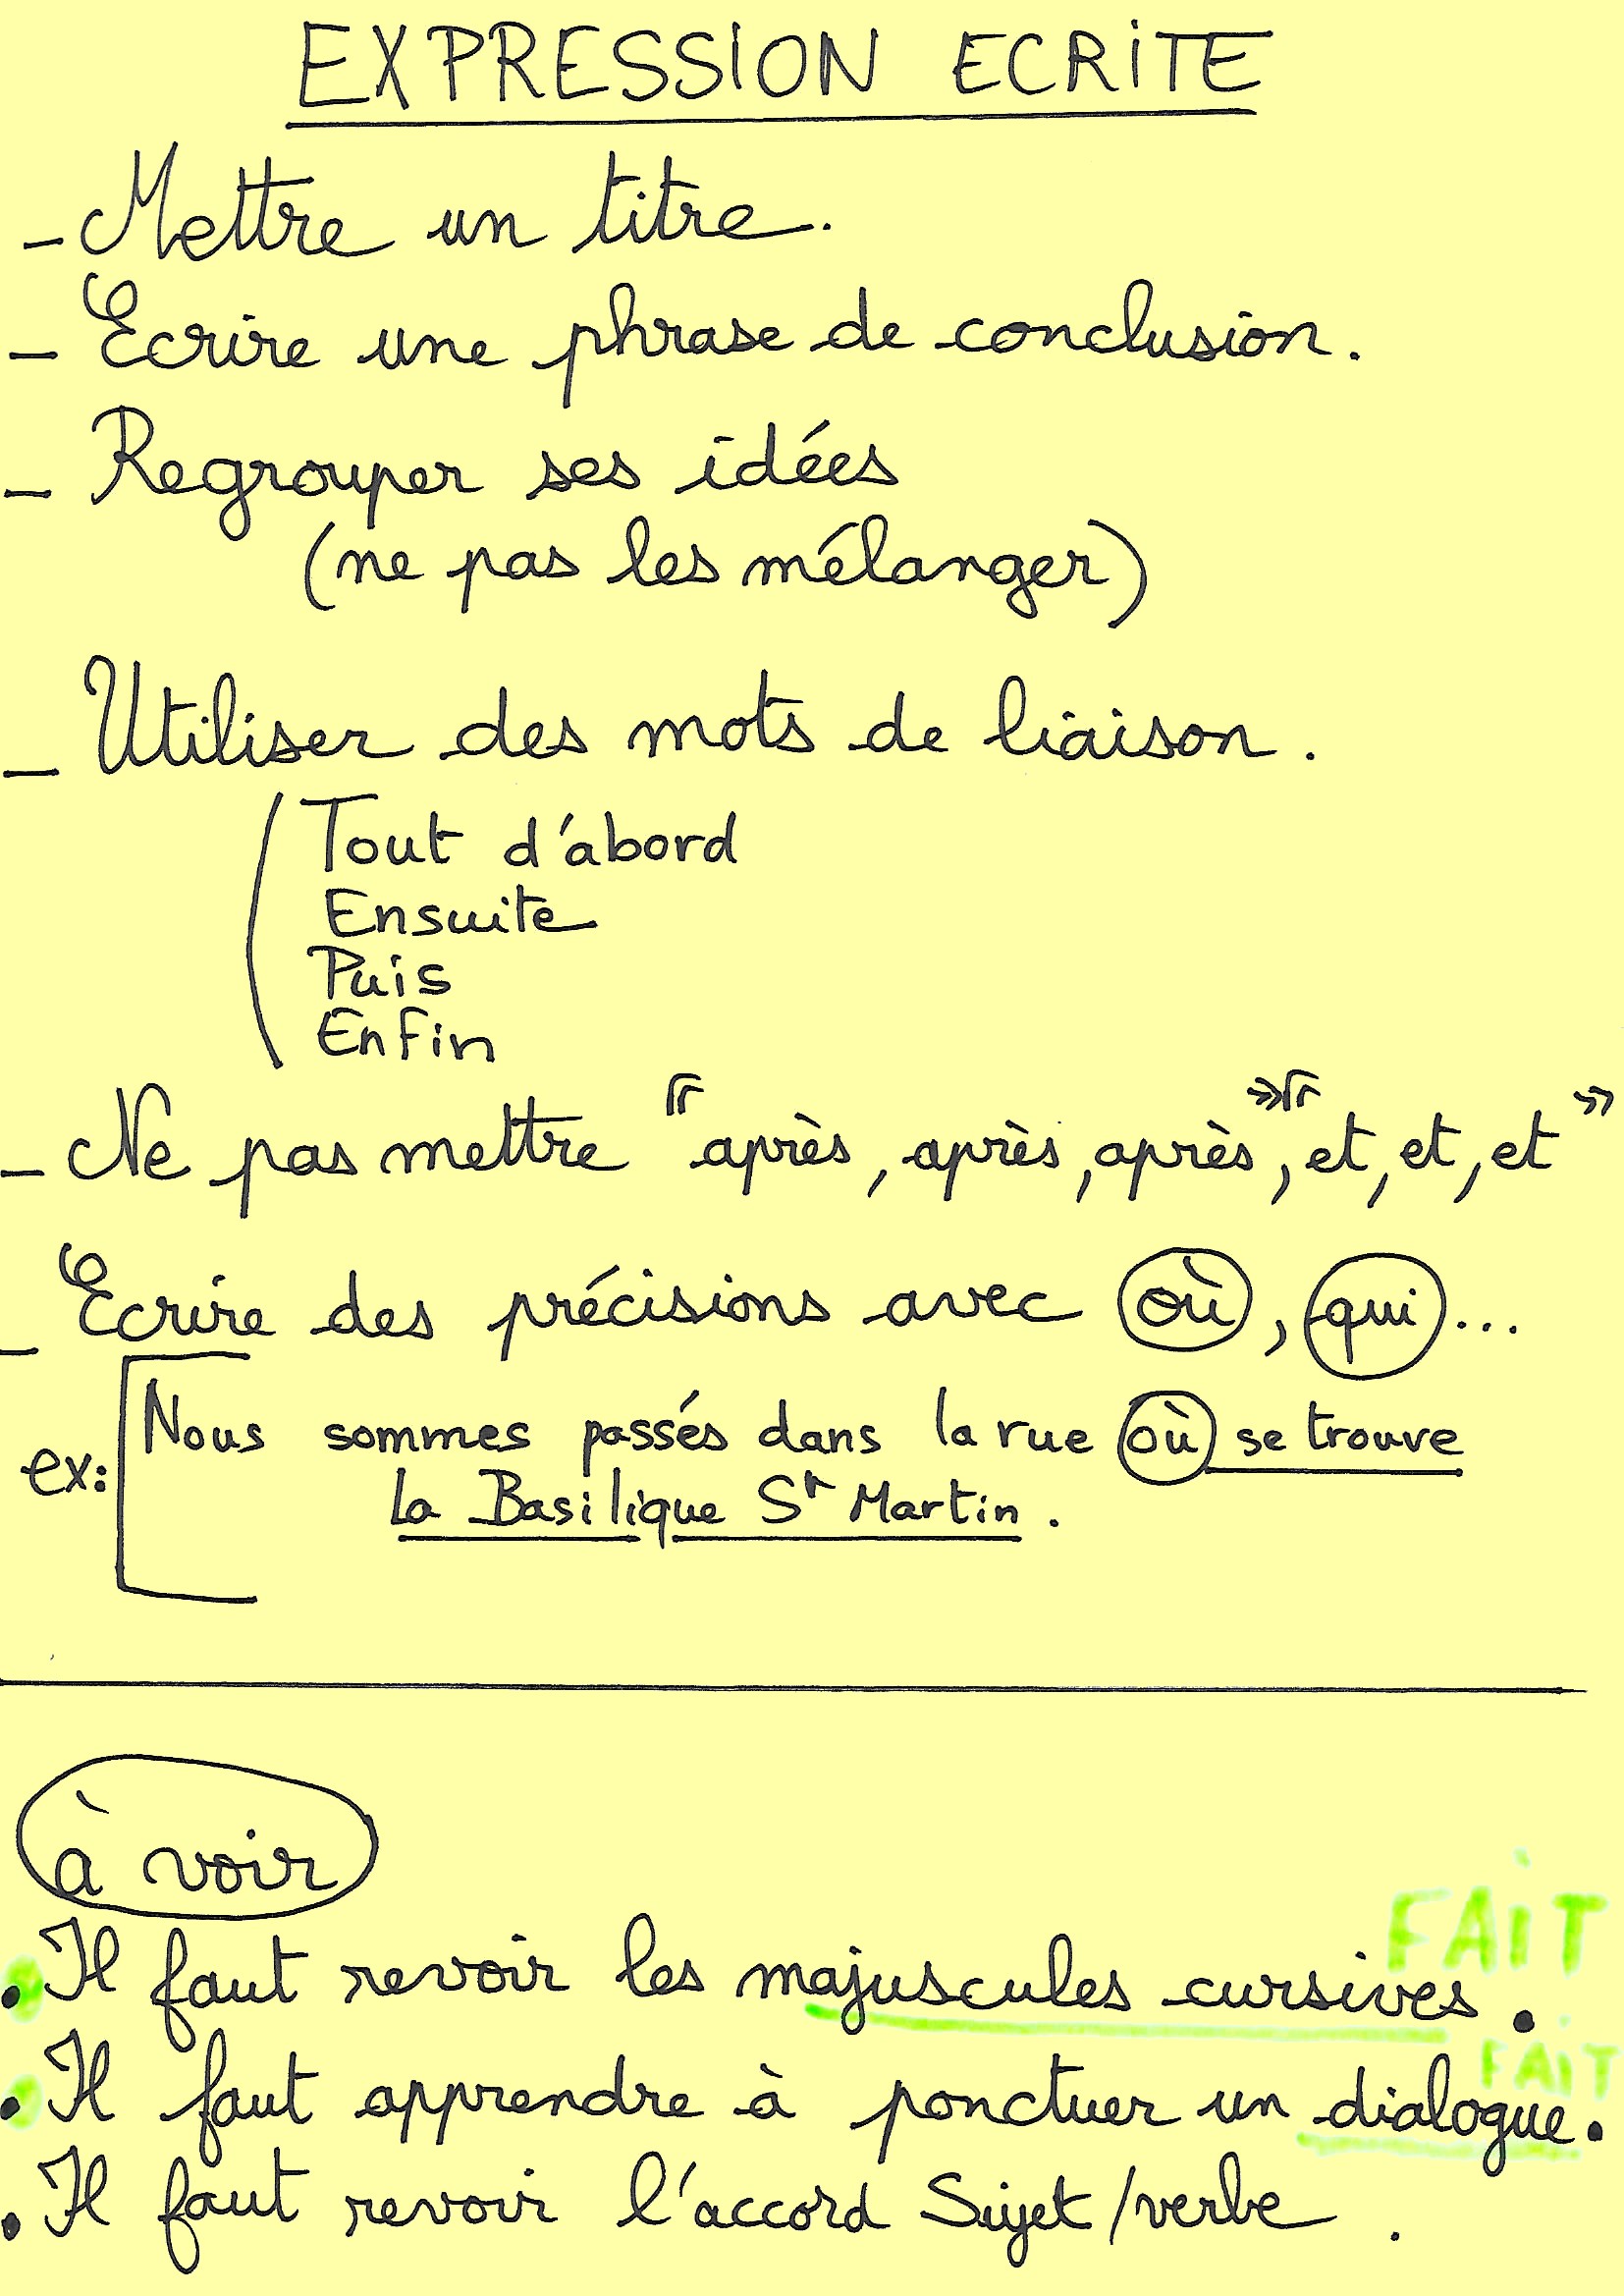 EXPRESSION ECRITE
- Mettre un titre.
- Ecrire une phrase de conclusion.
- Regrouper ses idées
(ne pas les mélanger)
- Utiliser des mots de liaison.
Tout d'abord
Ensuite
Puis
Enfin
- Ne pas mettre « après, après, après », « et, et, et »
- Ecrire des précisions avec où, qui...
ex: Nous sommes passés dans la rue où se trouve
la Basilique St Martin.
à voir
FAIT
• Il faut revoir les majuscules cursives.
FAIT
• Il faut apprendre à ponctuer un dialogue.
• Il faut revoir l'accord Sujet/verbe.